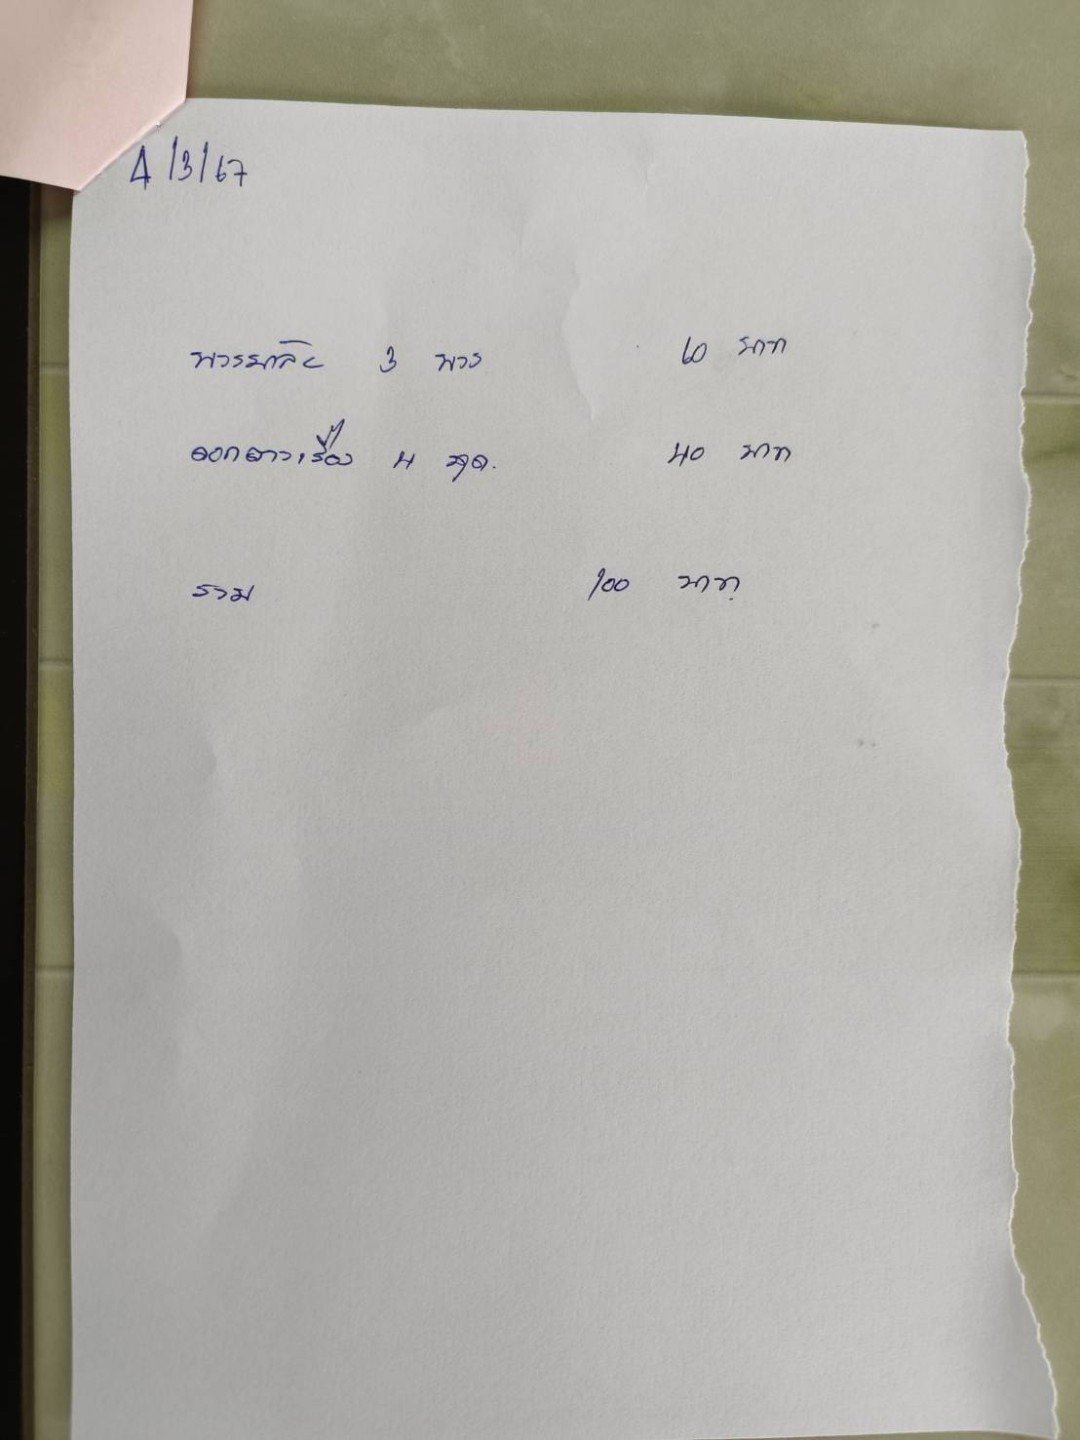 4/3/67
พวงมาลัย 3 พวง 60 บาท
ดอกดาวเรือง 4 ชุด. 40 บาท
รวม 100 บาท.